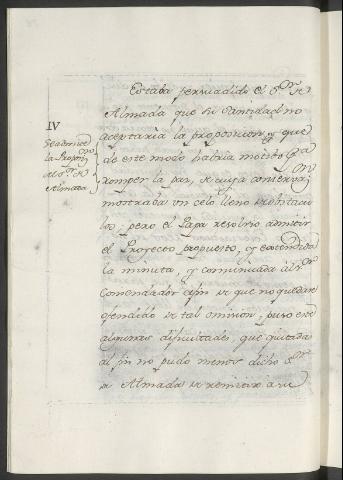 IV
Se admite
la Propon
Al Sr. de
Almada
Estaba persuadido el Sr. de
Almada que Su Santidad no
aceptaria la proposicion, y que
de este modo habria motivo pa
romper la paz, de cuya conservon
mostraba un celo lleno
pero el Papa resolvio admitir
el Proyecto propuesto, y extendida
la minuta, y comunicada al Sr
Comendador afin de que no quedare
ofendido de tal omision, puso este
algunas dificultades, que quitadas
al fin no pudo menos dicho Sr
de Almada de remitiro a su